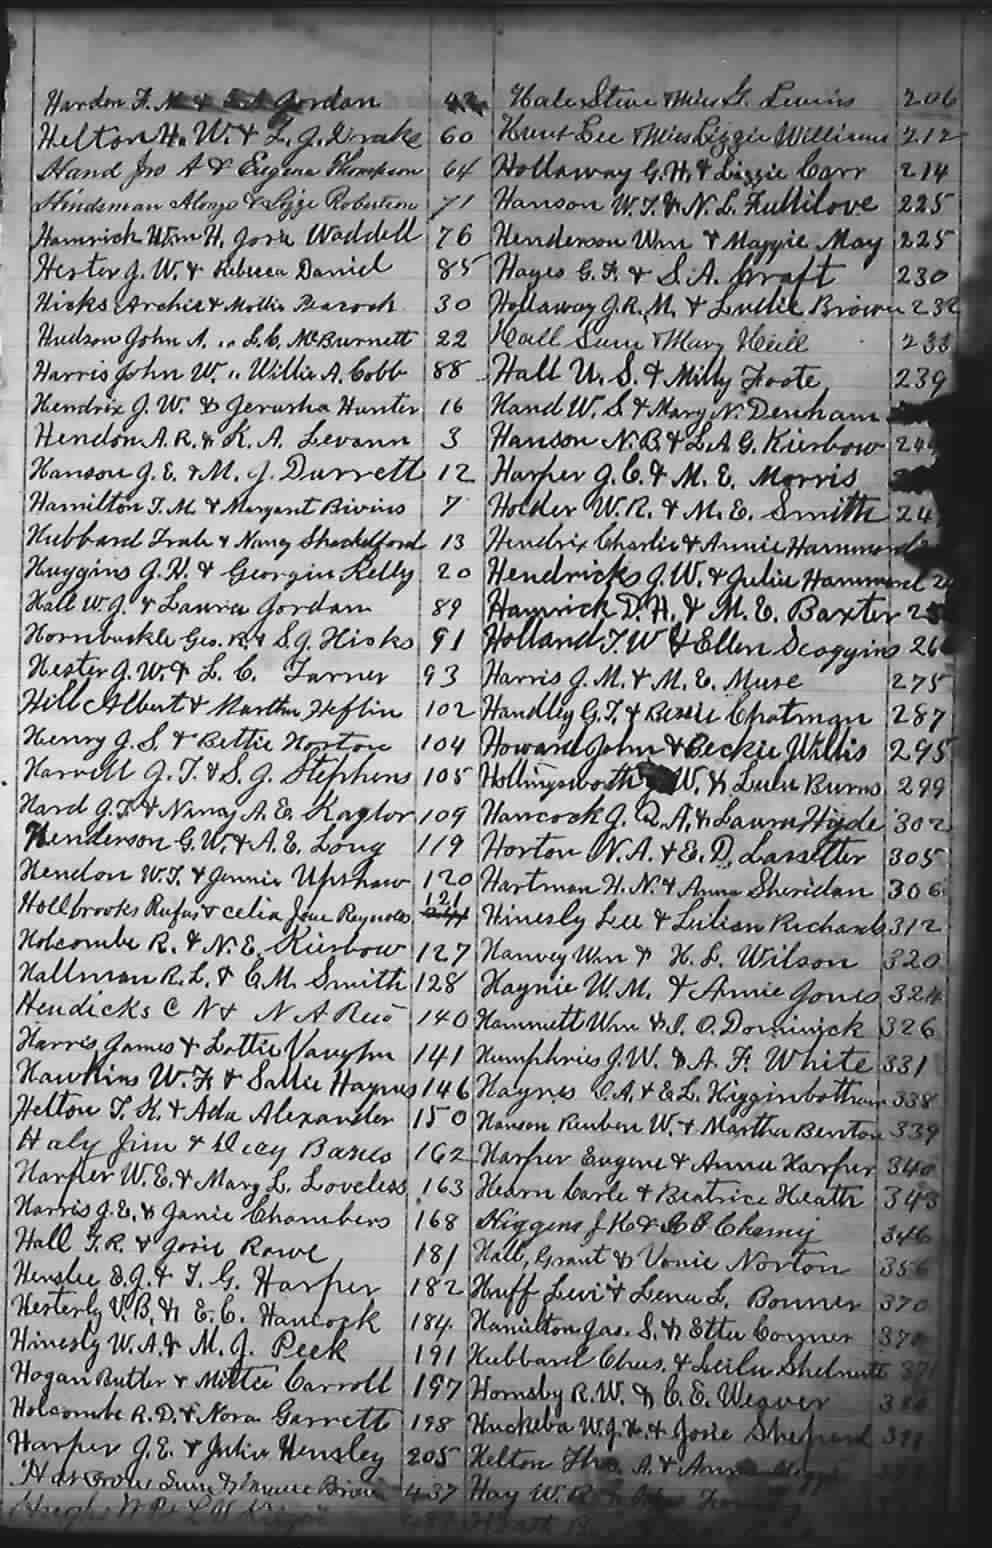 Harden F. N. & Jordan 42
Helton H. W. & L. J. Drake 60
Hand Jno A & Eugena Thompson 64
Hindsman Alonzo & Lizzie Robertson 71
Hamrick Wm H. Josie Waddell 76
Hester J. W. & Rebecca Daniel 85
Hicks Archie & Mollie Peacock 30
Hudson John A. " L. C. McBurnett 22
Harris John W. " Willie A. Cobb 88
Hendrix J. W. & Jerusha Hunter 16
Hendon A. R. & K. A. Levann 3
Hanson J. E. & M. J. Durrett 12
Hamilton T. M. & Margaret Bivins 7
Hubbard Trale & Nancy Shackelford 13
Huggins J. H. & Georgia Kelly 20
Hall W. J. & Laura Jordan 89
Hornbuckle Geo. R. & S. J. Hicks 91
Hester J. W. & L. C. Turner 93
Hill Albert & Martha Heflin 102
Henry J. S. & Bettie Norton 104
Harvell J. T. & S. J. Stephens 105
Hard J. T. & Nancy A. E. Kaylor 109
Henderson G. W. & A. E. Long 119
Hendon W. T. & Jennie Upshaw 120
Hollbrooks Rufus & Celia Jane Reynolds 121
Holcombe R. & N. E. Kierbow 127
Hallman R. L. & C. M. Smith 128
Hendicks C N & N A 140
Harris James & Lottie Vaughn 141
Hawkins W. F. & Sallie Haynes 146
Helton T. K. & Ada Alexander 150
Haly Jim & Dicey 162
Harper W. E. & Mary L. Loveless 163
Harris J. E. & Janie Chambers 168
Hall T. R. & Josie Rowe 181
Henslee E. J. & T. G. Harper 182
Hesterly V. B. & E. C. Hancock 184
Hinesly W. A. & M. J. Peek 191
Hogan Butler & Mittie Carroll 197
Holcombe R. D. & Nora Garrett 198
Harper J. E. & Julia Hensley 205
437
Hale Steve & Miss G. Levins 206
Hunt Lee & Miss Lizzie Williams 212
Hollaway G. H. & Lizzie Carr 214
Hanson W. T. & N. L. Fullilove 225
Henderson Wm & Maggie May 225
Hayes G. F. & S. A. Craft 230
Hollaway J. R. M. & Lullie Brown 232
Hall Sam & Mary Neill 233
Hall U. S. & Milly Foote 239
Hand W. S. & Mary N. Denham
Hanson N. B. & L. A. G. Kierbow 24
Harper J. C. & M. E. Morris
Holder W. R. & M. E. Smith 24
Hendrix Charlie & Annie Hammonds
Hendricks J. W. & Julia Hammond 2
Hamrick D. H. & M. E. Baxter 25
Holland T. W & Ellen Scoggins 26
Harris J. M. & M. E. Muse 275
Handley G. T. & Bessie Chatman 287
Howard John & Beckie Willis 295
Hollingsworth W. & Lula Burns 299
Hancock J. D. A. & Laura Hyde 302
Horton N. A. & E. D. Lassetter 305
Hartman H. N. & Anna Sheridan 306
Hinesly Lee & Lilian Richards 312
Harvey Wm & H. L. Wilson 320
Haynie W. M. & Annie Jones 324
Hammett Wm & I. O. Dominick 326
Humphries J. W. & A. F. White 331
Haynes C. A. & E. L. Higginbotham 338
Hanson Reuben W. & Martha Benton 339
Harper Eugene & Annie Harper 340
Hearn Carle & Beatrice Heath 343
Higgens J K & 346
Hall, Grant & Vonie Norton 356
Huff Levi & Lena L. Bonner 370
Hamilton Jas. S. & Etta Conner 370
Hubbard Chas. & Leila Shelnutt 371
Hornsby R. W. & C. E. Weaver 380
Huckeba W. J. H. & Josie Sheperd 391
Helton A. &
Hay W. R.